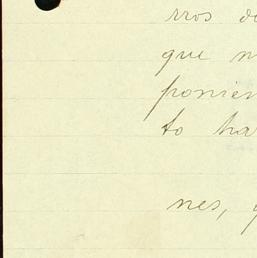 rros d
que n
ponien
to ha
nes, y